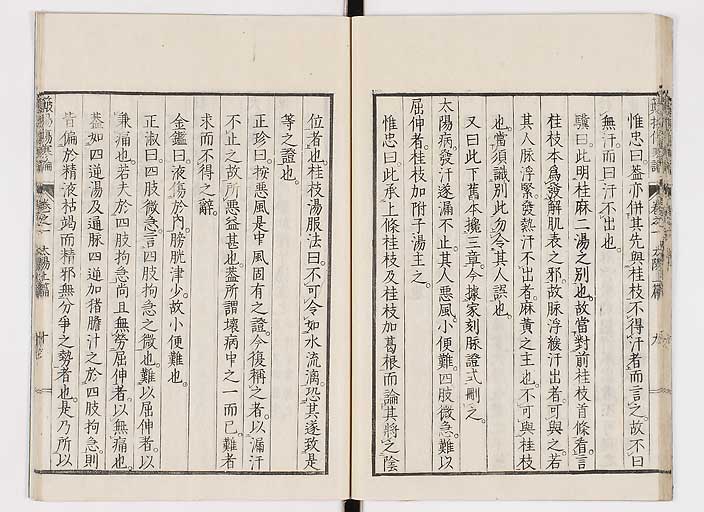 惟忠曰。蓋亦併其先與桂枝不得汗者而言之。故不曰
無汗而曰汗不出也。
驥曰。此明桂麻二湯之別也。故當對前桂枝首條看。言
桂枝本為發解肌表之邪。故脉浮緩汗出者。可與之。若
其人脉浮緊。發熱汗不出者。麻黃之主也。不可與桂枝
也。當須識別此。勿令其人誤也。
又曰此下舊本攙三章。今據家刻脉證式刪之。
太陽病。發汗遂漏不止。其人惡風。小便難。四肢微急。難以
屈伸者。桂枝加附子湯主之。
惟忠曰。此承上條桂枝及桂枝加葛根而論其將之陰
位者也。桂枝湯服法曰。不可令如水流漓。恐其遂致是
等之證也。
正珍曰。按惡風是中風固有之證。今復稱之者。以漏汗
不止之故。所惡益甚也。蓋所謂壞病中之一而已。難者
求而不得之辭。
金鑑曰。液傷於內。膀胱津少。故小便難也。
正淑曰。四肢微急。言四肢拘急之微也。難以屈伸者。以
兼痛也。若夫於四肢拘急尚且無勞屈伸者。以無痛也。
蓋如四逆湯及通脉四逆加猪膽汁之於四肢拘急。則
皆偏於精液枯竭而精邪無分爭之勢者也。是乃所以
卷之一 太陽上篇